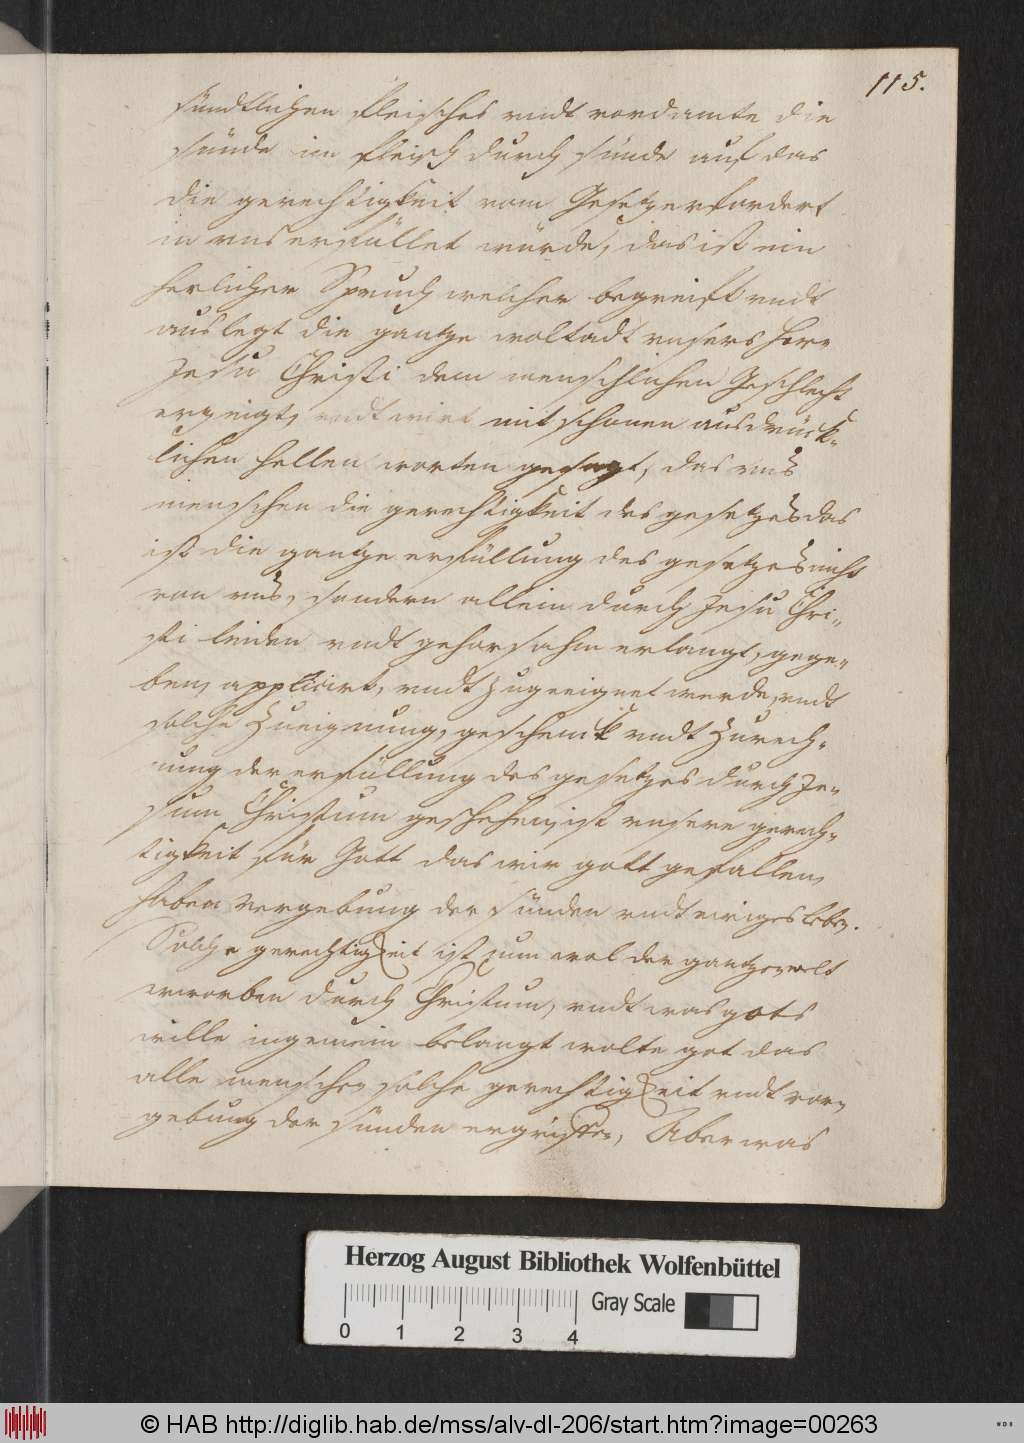 115.
sündtlichen fleisches vndt vordamte die
sünde im fleisch durch sünde auf das
die gerechtigkeit vom Gesetz erfordert
in vns erfüllet würde, das ist ein
herlicher Spruch welcher begreift vndt
auslegt die gantze woltadt vnsers herr
Jesu Christi dem menschlichen Geschlecht
erzeigt, vndt wirt mit schonen ausdrück-
lichen hellen worten gesagt, das vns
menschen die gerechtigkeit des gesetzes das
ist die gantze erfüllung des gesetzes nicht
von vns, sondern allein durch Jesu Chri-
sti leiden vndt gehorsahm erlangt, gege-
ben, applicirt, vndt zugeeignet werde, vndt
solche Zueignung, geschenck vndt Zurech-
nung der erfüllung des gesetzes durch Je-
sum Christum geschehen, ist vnsere gerech-
tigkeit für Gott das wir gott gefallen,
haben vergebung der sünden vndt ewiges leben.
Solche gerechtigkeit ist zum wol der gantzen welt
erworben durch Christum, vndt was gots
wille ingemein belangt wolte got das
alle menschen solche gerechtigkeit vndt vor-
gebung der sünden ergriffen, Aber was
Herzog August Bibliothek Wolfenbüttel
Gray Scale
0 1 2 3 4
© HAB http://diglib.hab.de/mss/alv-dl-206/start.htm?image=00263